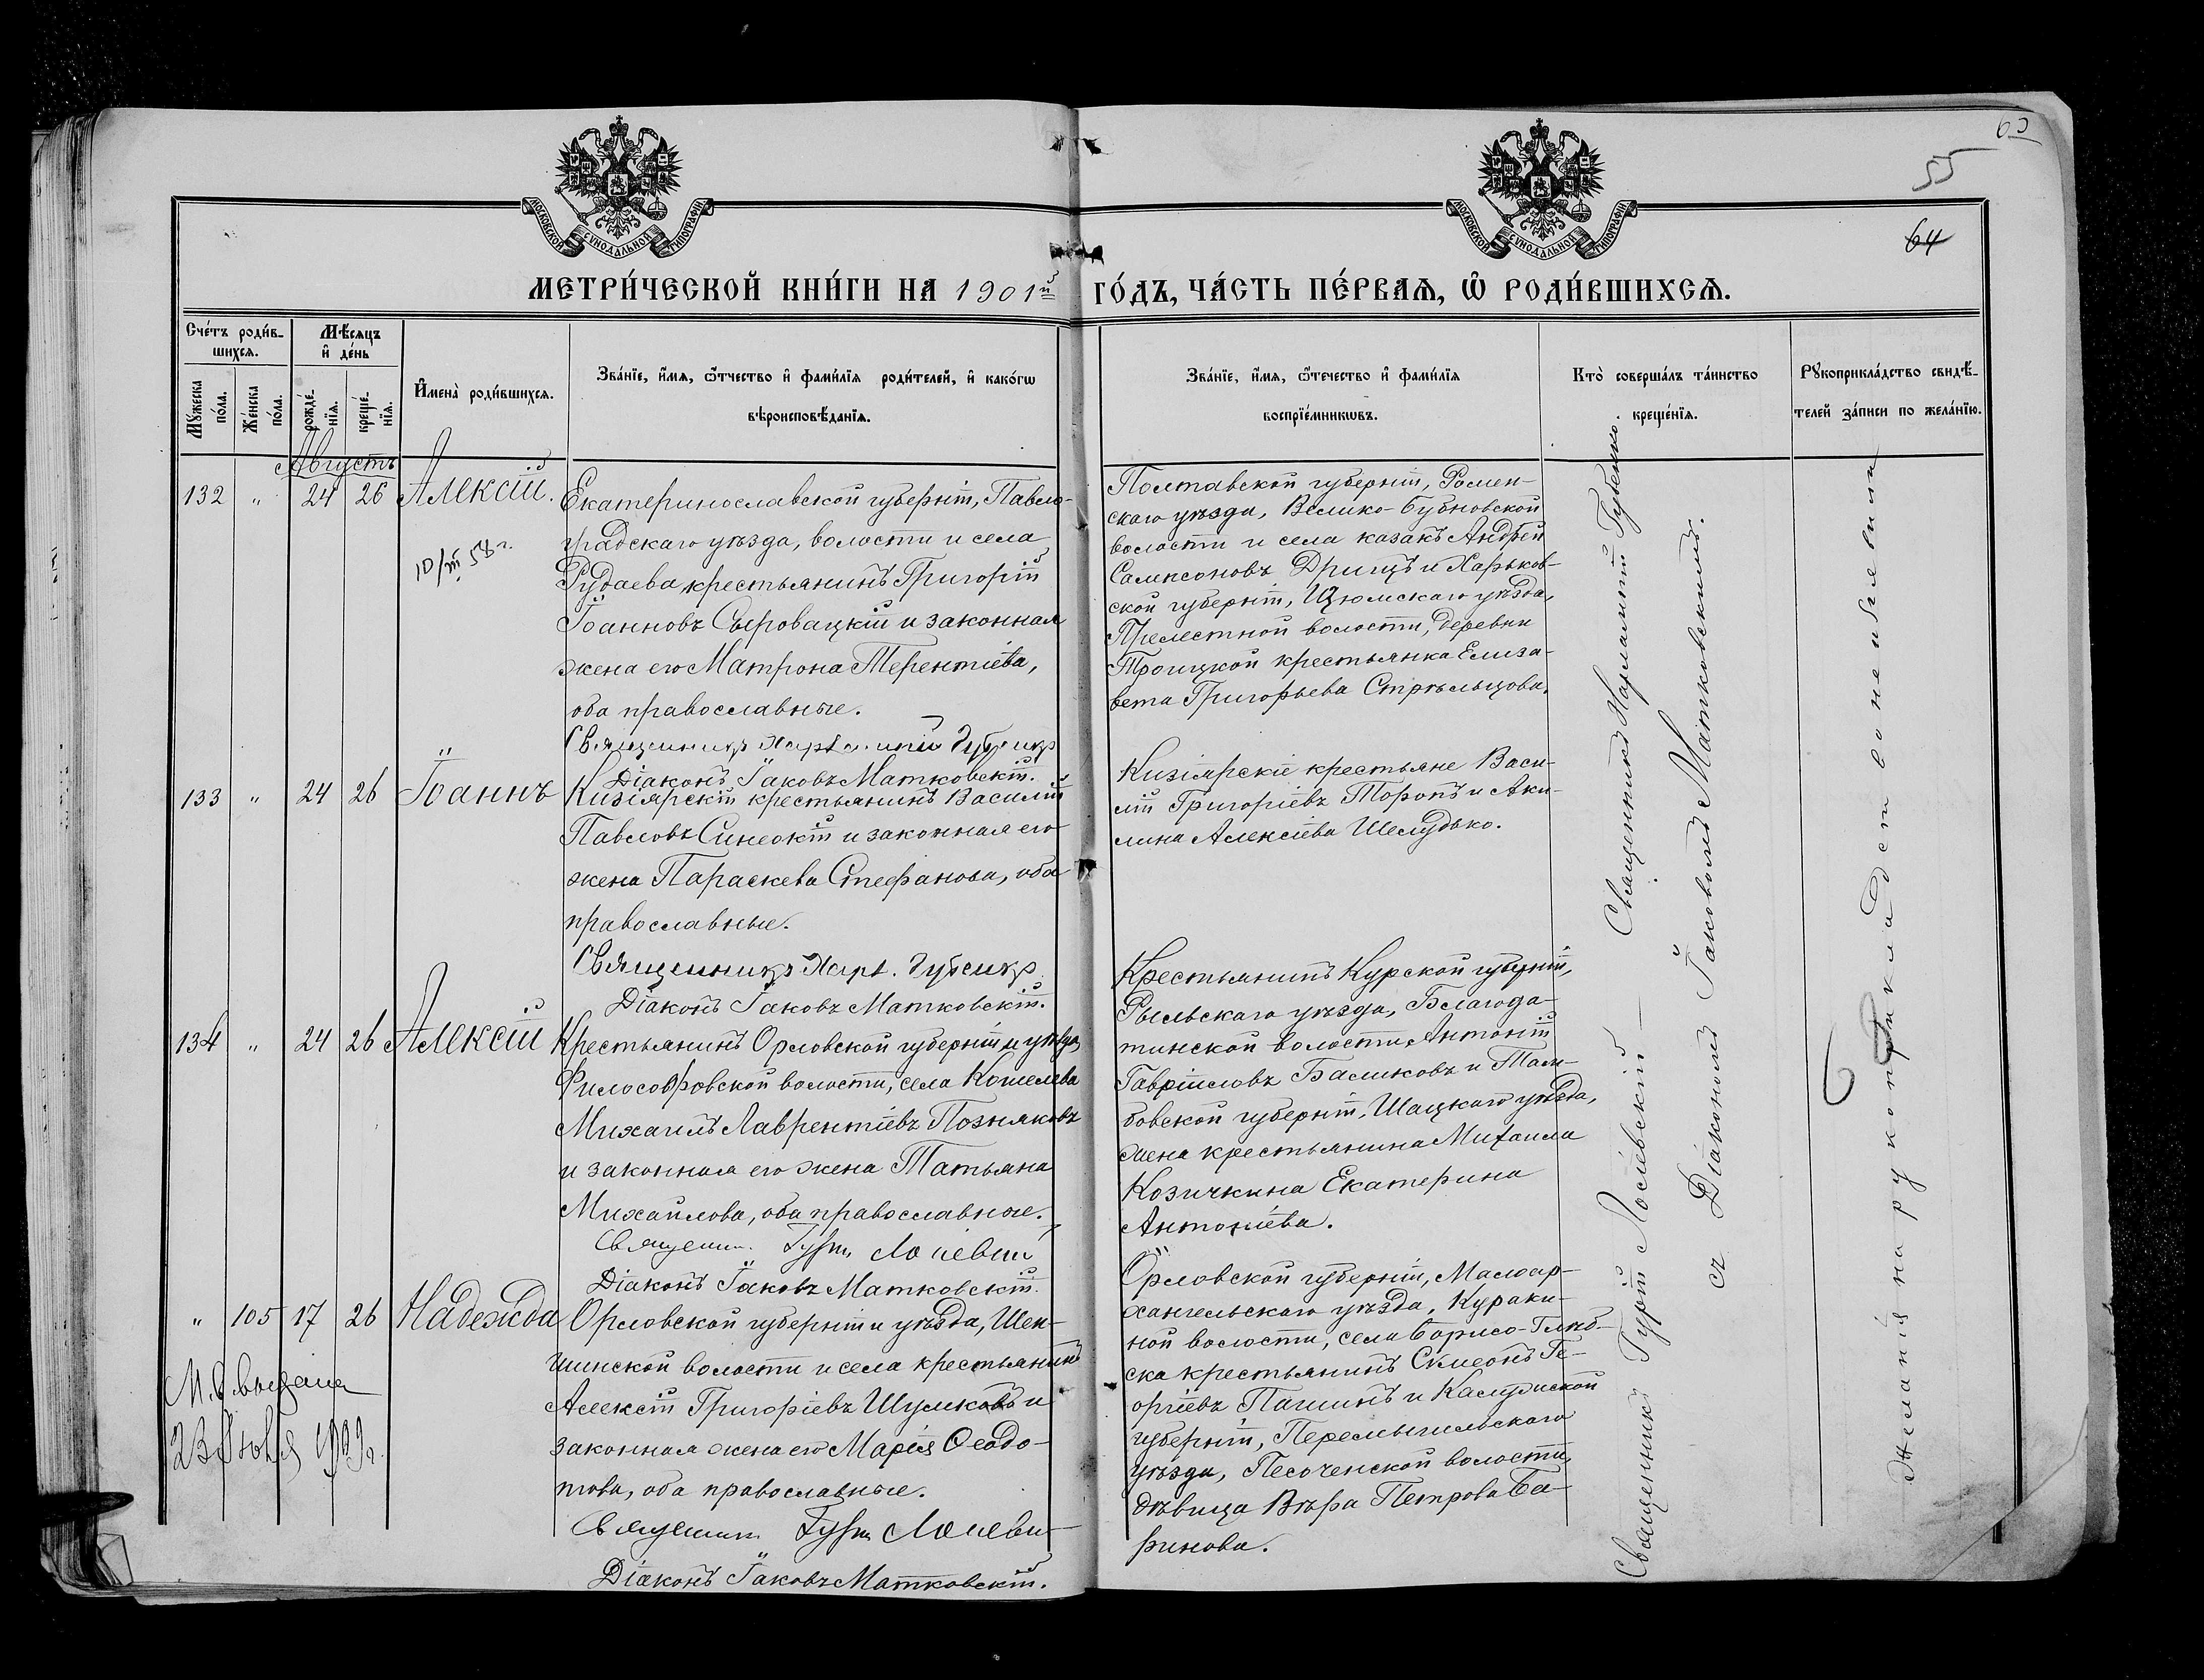 60
55
64
МОСКОВСКОЙ СѴНОДАЛЬНОЙ ТИПОГРАФІИ
МОСКОВСКОЙ СѴНОДАЛЬНОЙ ТИПОГРАФІИ
МЕТРИ́ЧЕСКОЙ КНИ́ГИ НА 1901й ГО́ДЪ, ЧА́СТЬ ПЕ́РВАѦ, Ѡ҆ РОДИ́ВШИХСѦ.
Сче́тъ роди́в-
шихсѧ.
Мꙋ́жеска по́ла.
Же́нска по́ла.
Мѣ́сѧцъ
и҆ де́нь
рожде́-
нїѧ.
креще́-
нїѧ.
И҆мена̀ роди́вшихсѧ.
Зва́нїе, и҆́мѧ, ѻ҆́тчество и҆ фами́лїѧ роди́телей, и҆ како́гѡ
вѣроисповѣ́данїѧ.
Зва́нїе, и҆́мѧ, ѻ҆́течество и҆ фами́лїѧ
воспрїе́мникѡвъ.
Кто̀ соверша́лъ та́инство
креще́нїѧ.
Рꙋкоприкла́дство свидѣ́-
телей за́писи по жела́нїю.
Августъ
132 " 24 26 Алексій.
10/III 58 г.
Екатеринославской губерніи, Павло-
градскаго уѣзда, волости и села
Рудаева крестьянинъ Григорій
Іоанновъ Сыровацкій и законная
жена его Матрона Терентіева,
оба православные.
Священникъ Харлампій Губенко
Діаконъ Іаковъ Матковскій.
Полтавской губерніи, Ромен-
скаго уѣзда, Велико-Бубновской
волости и села казакъ Андрей
Самсоновъ Дрищъ и Харьков-
ской губерніи, Изюмскаго уѣзда,
Прелестной волости, деревни
Троицкой крестьянка Елиза-
вета Григорьева Стрѣльцова.
133 " 24 26 Іоаннъ
Кизіярскій крестьянинъ Василій
Павловъ Синеокій и законная его
жена Параскева Стефанова, оба
православные.
Священникъ Харл. Губенко
Діаконъ Іаковъ Матковскій.
Кизіярскіе крестьяне Васи-
лій Григоріевъ Торопъ и Аки-
лина Алексіева Шелудько.
134 " 24 26 Алексій
Крестьянинъ Орловской губерніи и уѣзда
Философовской волости, села Кошелева
Михаилъ Лаврентіевъ Позняковъ
и законная его жена Татьяна
Михайлова, оба православные.
Священ. Гурій Лосіевскій
Діаконъ Іаковъ Матковскій.
Крестьянинъ Курской губерніи,
Рыльскаго уѣзда, Благода-
тинской волости Антоній
Гавріиловъ Баликовъ и Там-
бовской губерніи, Шацкаго уѣзда,
жена крестьянина Михаила
Козичкина Екатерина
Антоніева.
" 105 17 26 Надежда
М. В. выдана
23 1929 г.
Орловской губерніи и уѣзда, Шен-
шинской волости и села крестьянинъ
Алексій Григоріевъ Шумковъ и
законная жена его Марія Ѳеодо-
това, оба православные.
Священник Гурій Лосіевск
Діаконъ Іаковъ Матковскій.
Орловской губерніи, Малоар-
хангельскаго уѣзда, Кураки-
ной волости, села Борисо-Глѣб-
ска крестьянинъ Сѵмеонъ Ге-
оргіевъ Пашинъ и Калужской
губерніи, Перемышльскаго
уѣзда, Песоченской волости
дѣвица Вѣра Петрова Ба-
ринова.
Священникъ Харлампій Губенко.
Священникъ Гурій Лосіевскій —
съ Діакономъ Іаковомъ Матковскимъ.
Желанія на рукоприкладство не изъявили